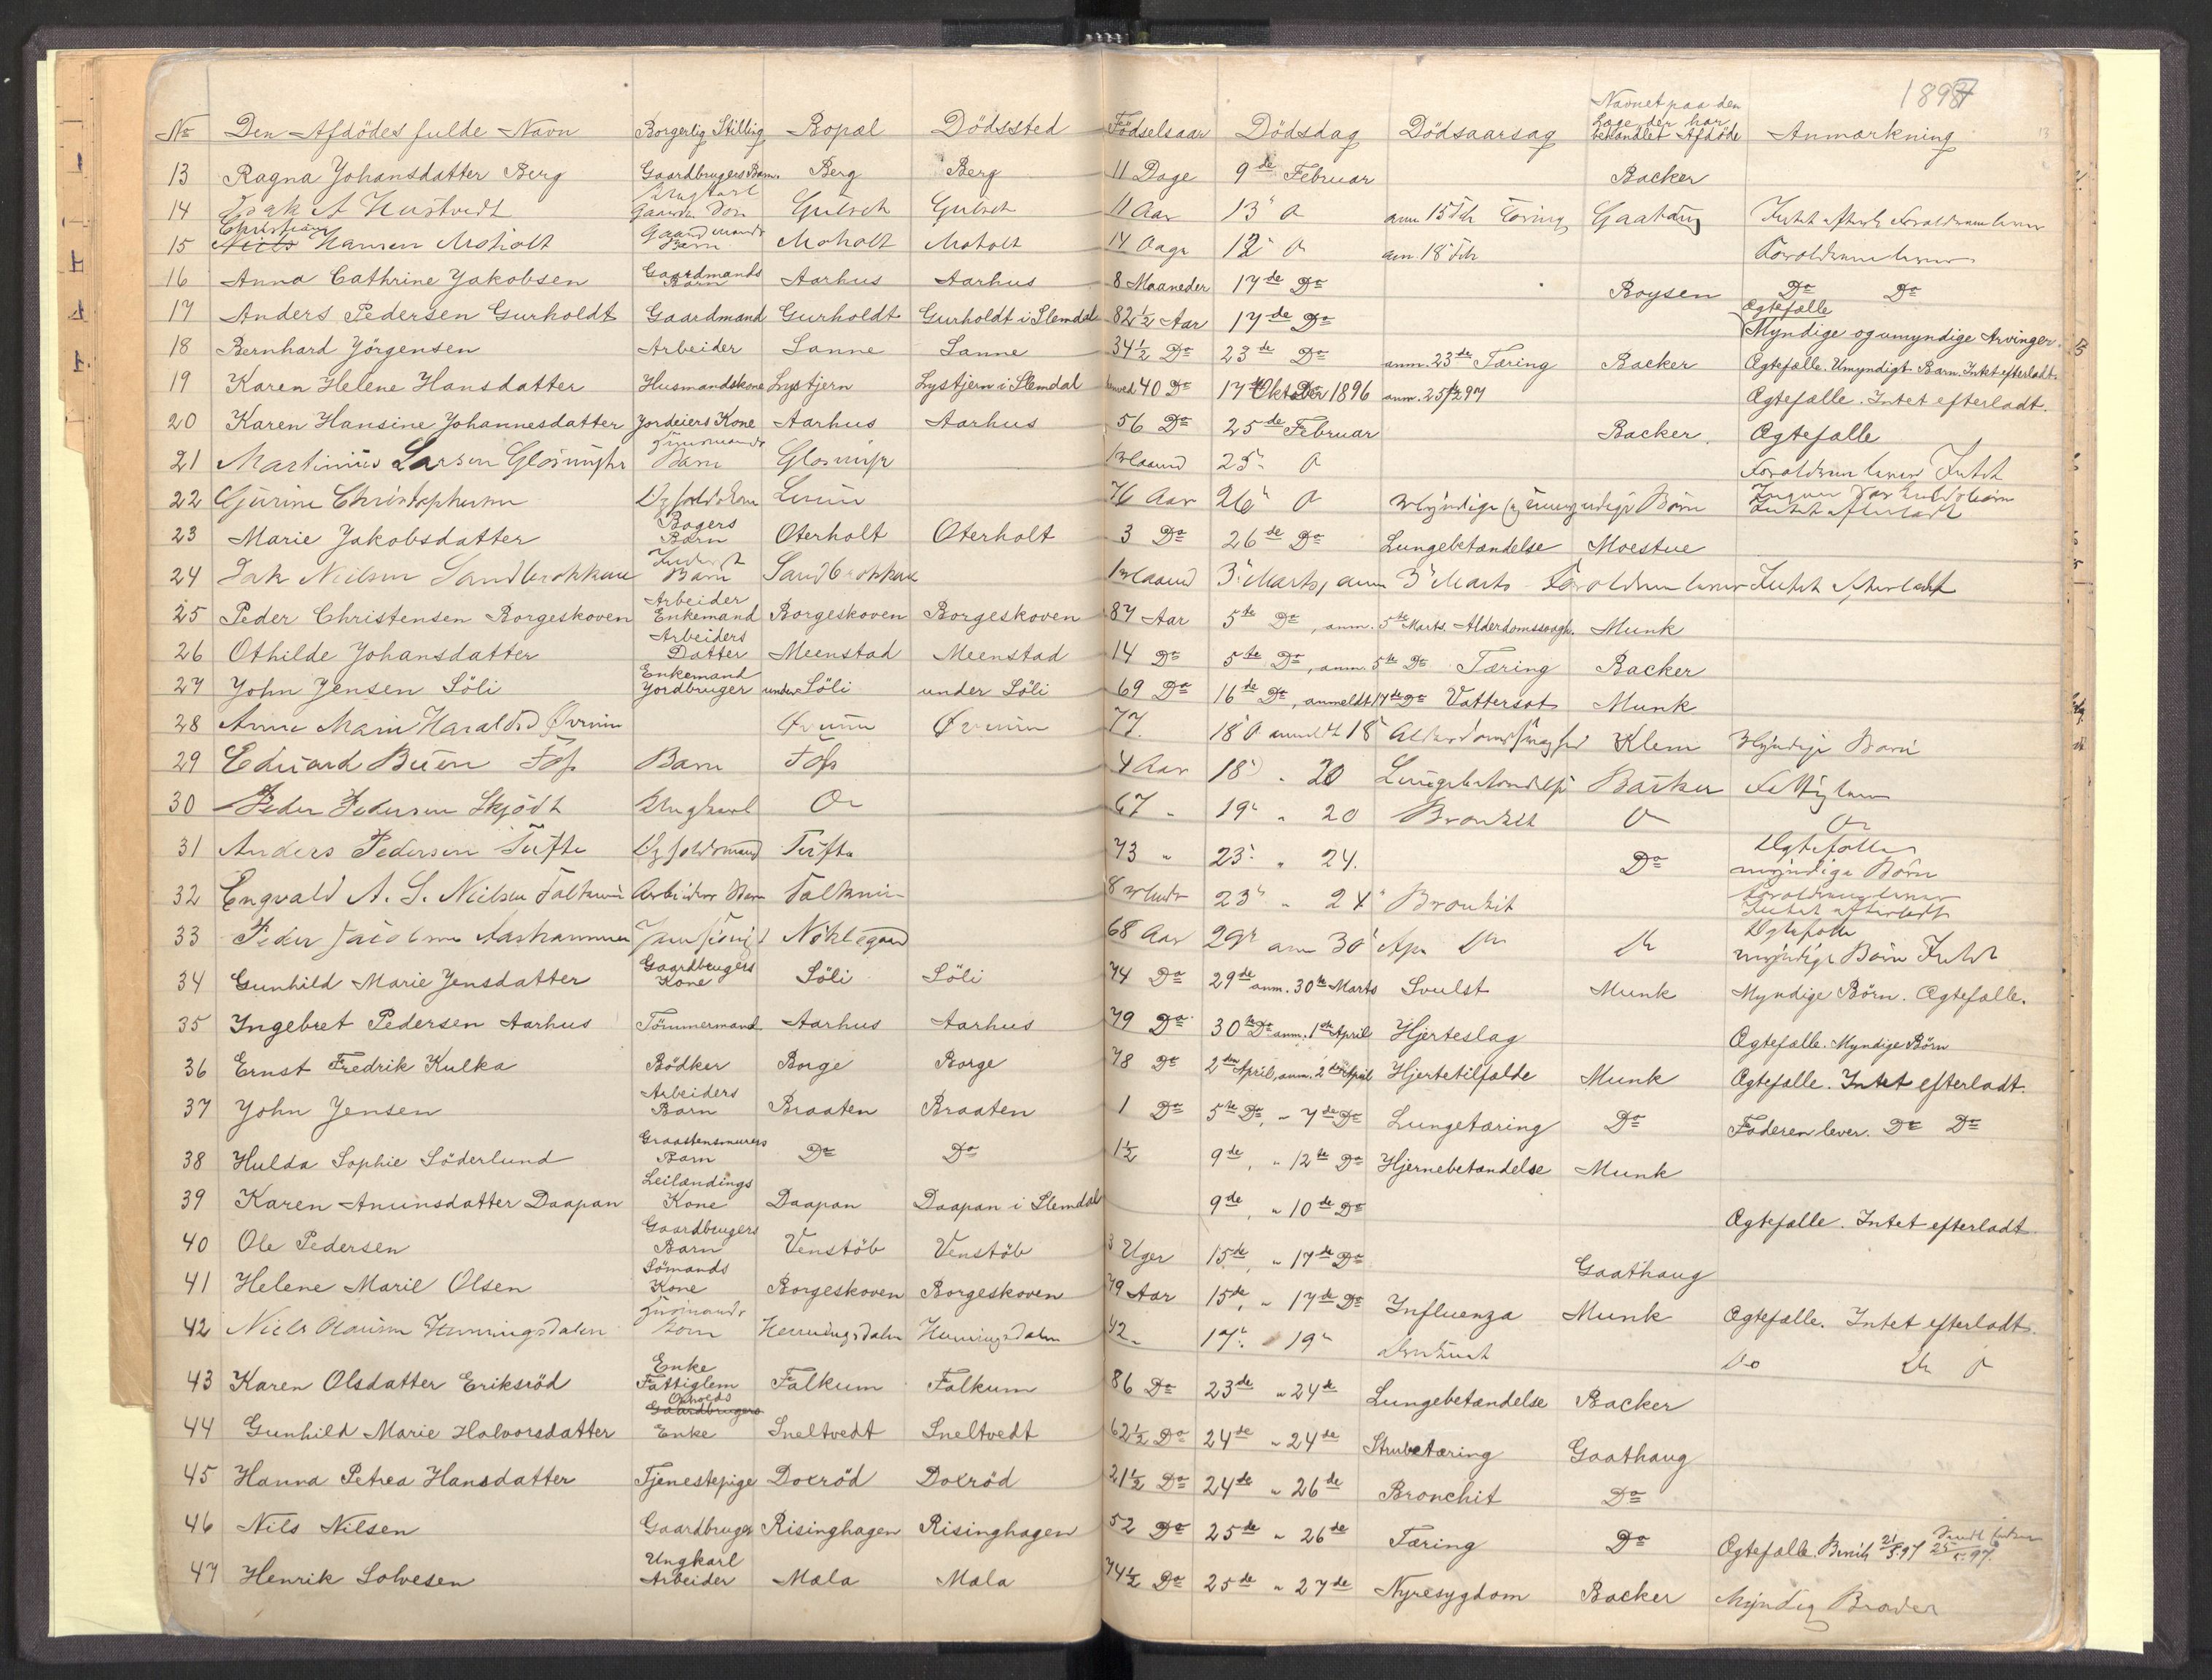 1897
13
No Den Afdödes fulde Navn Borgerlig Stilling Bopæl Dödssted Födselsaar Dödsdag Dödsaarsag Navnet paa den Læge der har behandlet Afdöde Anmærkning
13 Ragna Johansdatter Berg Gaardbrugers Barn. Berg Berg 11 Dage 9de Februar Backer
14 Isak A Hustvedt Ungkarl Gaardm Søn Gulseth Gulseth 11 Aar 13 anm 15 Feb Tæring Gaathaug Intet efterl. Forældrene lever
15 Niels Christian Hansen Moholt Gaardmands Barn Moholt Moholt 14 Dage 12 anm. 18 Feb Forældrene lever
16 Anna Cathrine Jakobsen Gaardmands Barn Aarhus Aarhus 8 Maaneder 17de Do Boysen Do Do
17 Anders Pedersen Gurholdt Gaardmand Gurholdt Gurholdt i Slemdal 82½ Aar 17de Do Ægtefælle Myndige og umyndige Arvinger.
18 Bernhard Jörgensen Arbeider Sanne Sanne 34½ Do 23de Do anm. 23de Tæring Backer Ægtefælle. Umyndigt Barn. Intet efterladt.
19 Karen Helene Hansdatter Husmandskone Lystjern Lystjern i Slemdal 40 Do 17 Oktober 1896 anm. 25/2 97 Ægtefælle. Intet efterladt.
20 Karen Hansine Johannesdatter Jordeiers Kone Aarhus Aarhus 56 Do 25de Februar Backer. Ægtefælle
21 Martinius Larsen Glosimyhr Barn 1 Maaned 25 Forældrene lever Intet
22 Gurine Christophersen 76 Aar 26 Myndige og umyndige Børn Intet efterladt
23 Marie Jakobsdatter Bagers Barn Oterholt Oterholt 3 Do 26de Do Lungebetændelse Moestue
24 Isak Nielsen Sandbrokkene Barn Sandbrokkene 1 Maaned 3 Marts, anm 3 Marts Forældrene lever Intet efterladt
25 Peder Christensen Borgeskoven Arbeider Enkemand Borgeskoven Borgeskoven 87 Aar 5te Do, anm. 5te Marts. Alderdomssvagh. Munk
26 Othilde Johansdatter Arbeiders Datter Meenstad Meenstad 14 Do 5te Do, anm. 5te Do Tæring Backer
27 John Jensen Söli Enkemand Jordbruger under Söli under Söli 69 Do 16de Do, anmeldt 17de Do Vattersot Munk
28 Anne Marie Haraldsd Øvrum Øvrum Øvrum 77. 18 anmeldt 18 Alderdomssvaghed Klem Myndige Børn
29 Eduard Buen Fos Barn Fos 4 Aar 18 " 20 Lungebetændelse Backer
30 Peder Pedersen Skjödt Ungkarl Do 67 " 19 " 20 Bronkit Do Do
31 Anders Pedersen Tufte Tufte 73 " 23 " 24. Do Ægtefælle myndige Børn
32 Engvald A. S. Nielsen Falkum Arbeiders Barn Falkum 8 23 " 24 Bronkit Forældrene lever Intet efterladt
33 Peder Jacobsen Aarhammen Nøklegaard 68 Aar 29 anm 30 Do Ægtefælle myndige Børn Intet
34 Gunhild Marie Jensdatter Gaardbrugers Kone Söli Söli 74 Do 29de anm. 30te Marts Svulst Munk Myndige Börn. Ægtefælle.
35 Ingebret Pedersen Aarhus Tömmermand Aarhus Aarhus 79 Do 30te Do anm. 1ste April Hjerteslag Ægtefælle. Myndige Börn
36 Ernst Fredrik Kulka Bödker Borge Borge 78 Do 2den April, anm. 2den April Hjertetilfælde Munk Ægtefælle. Intet efterladt.
37 John Jensen Arbeiders Barn Braaten Braaten 1 Do 5te Do, " 7de Do Lungetæring Do Faderen lever. Do Do
38 Hulda Sophie Söderlund Graastensmurers Barn Do Do 1½ 9de, " 12te Do Hjernebetændelse Munk
39 Karen Anunsdatter Daapan Leilændings Kone Daapan Daapan i Slemdal 9de, " 10de Do Ægtefælle. Intet efterladt
40 Ole Pedersen Gaardbrugers Barn Venstöb Venstöb 3 Uger 15de, " 17de Do Gaathaug
41 Helene Marie Olsen Sömands Kone Borgeskoven Borgeskoven 79 Aar 15de, " 17de Do Influenza Munk Ægtefælle. Intet efterladt.
42 Niels Hansen Henningsdalen Henningsdalen Henningsdalen 42 17 " 19 Do Do
43 Karen Olsdatter Eriksröd Enke Fattiglem Falkum Falkum 86 Do 23de " 24de Lungebetændelse Backer
44 Gunhild Marie Halvorsdatter Opholds Gaardbrugers Enke Sneltvedt Sneltvedt 62½ Do 24de " 24de Strubetæring Gaathaug
45 Hanna Petrea Hansdatter Tjenestepige Doxröd Doxröd 21½ Do 24de " 26de Bronchit Do
46 Nils Nilsen Gaardbruger Risinghagen Risinghagen 52 Do 25de " 26de Tæring Do Ægtefælle. 21/5 97 25/5 97.
47 Henrik Solvesen Ungkarl Arbeider Mæla Mæla 74½ Do 25de " 27de Nyresygdom Backer Myndig Broder